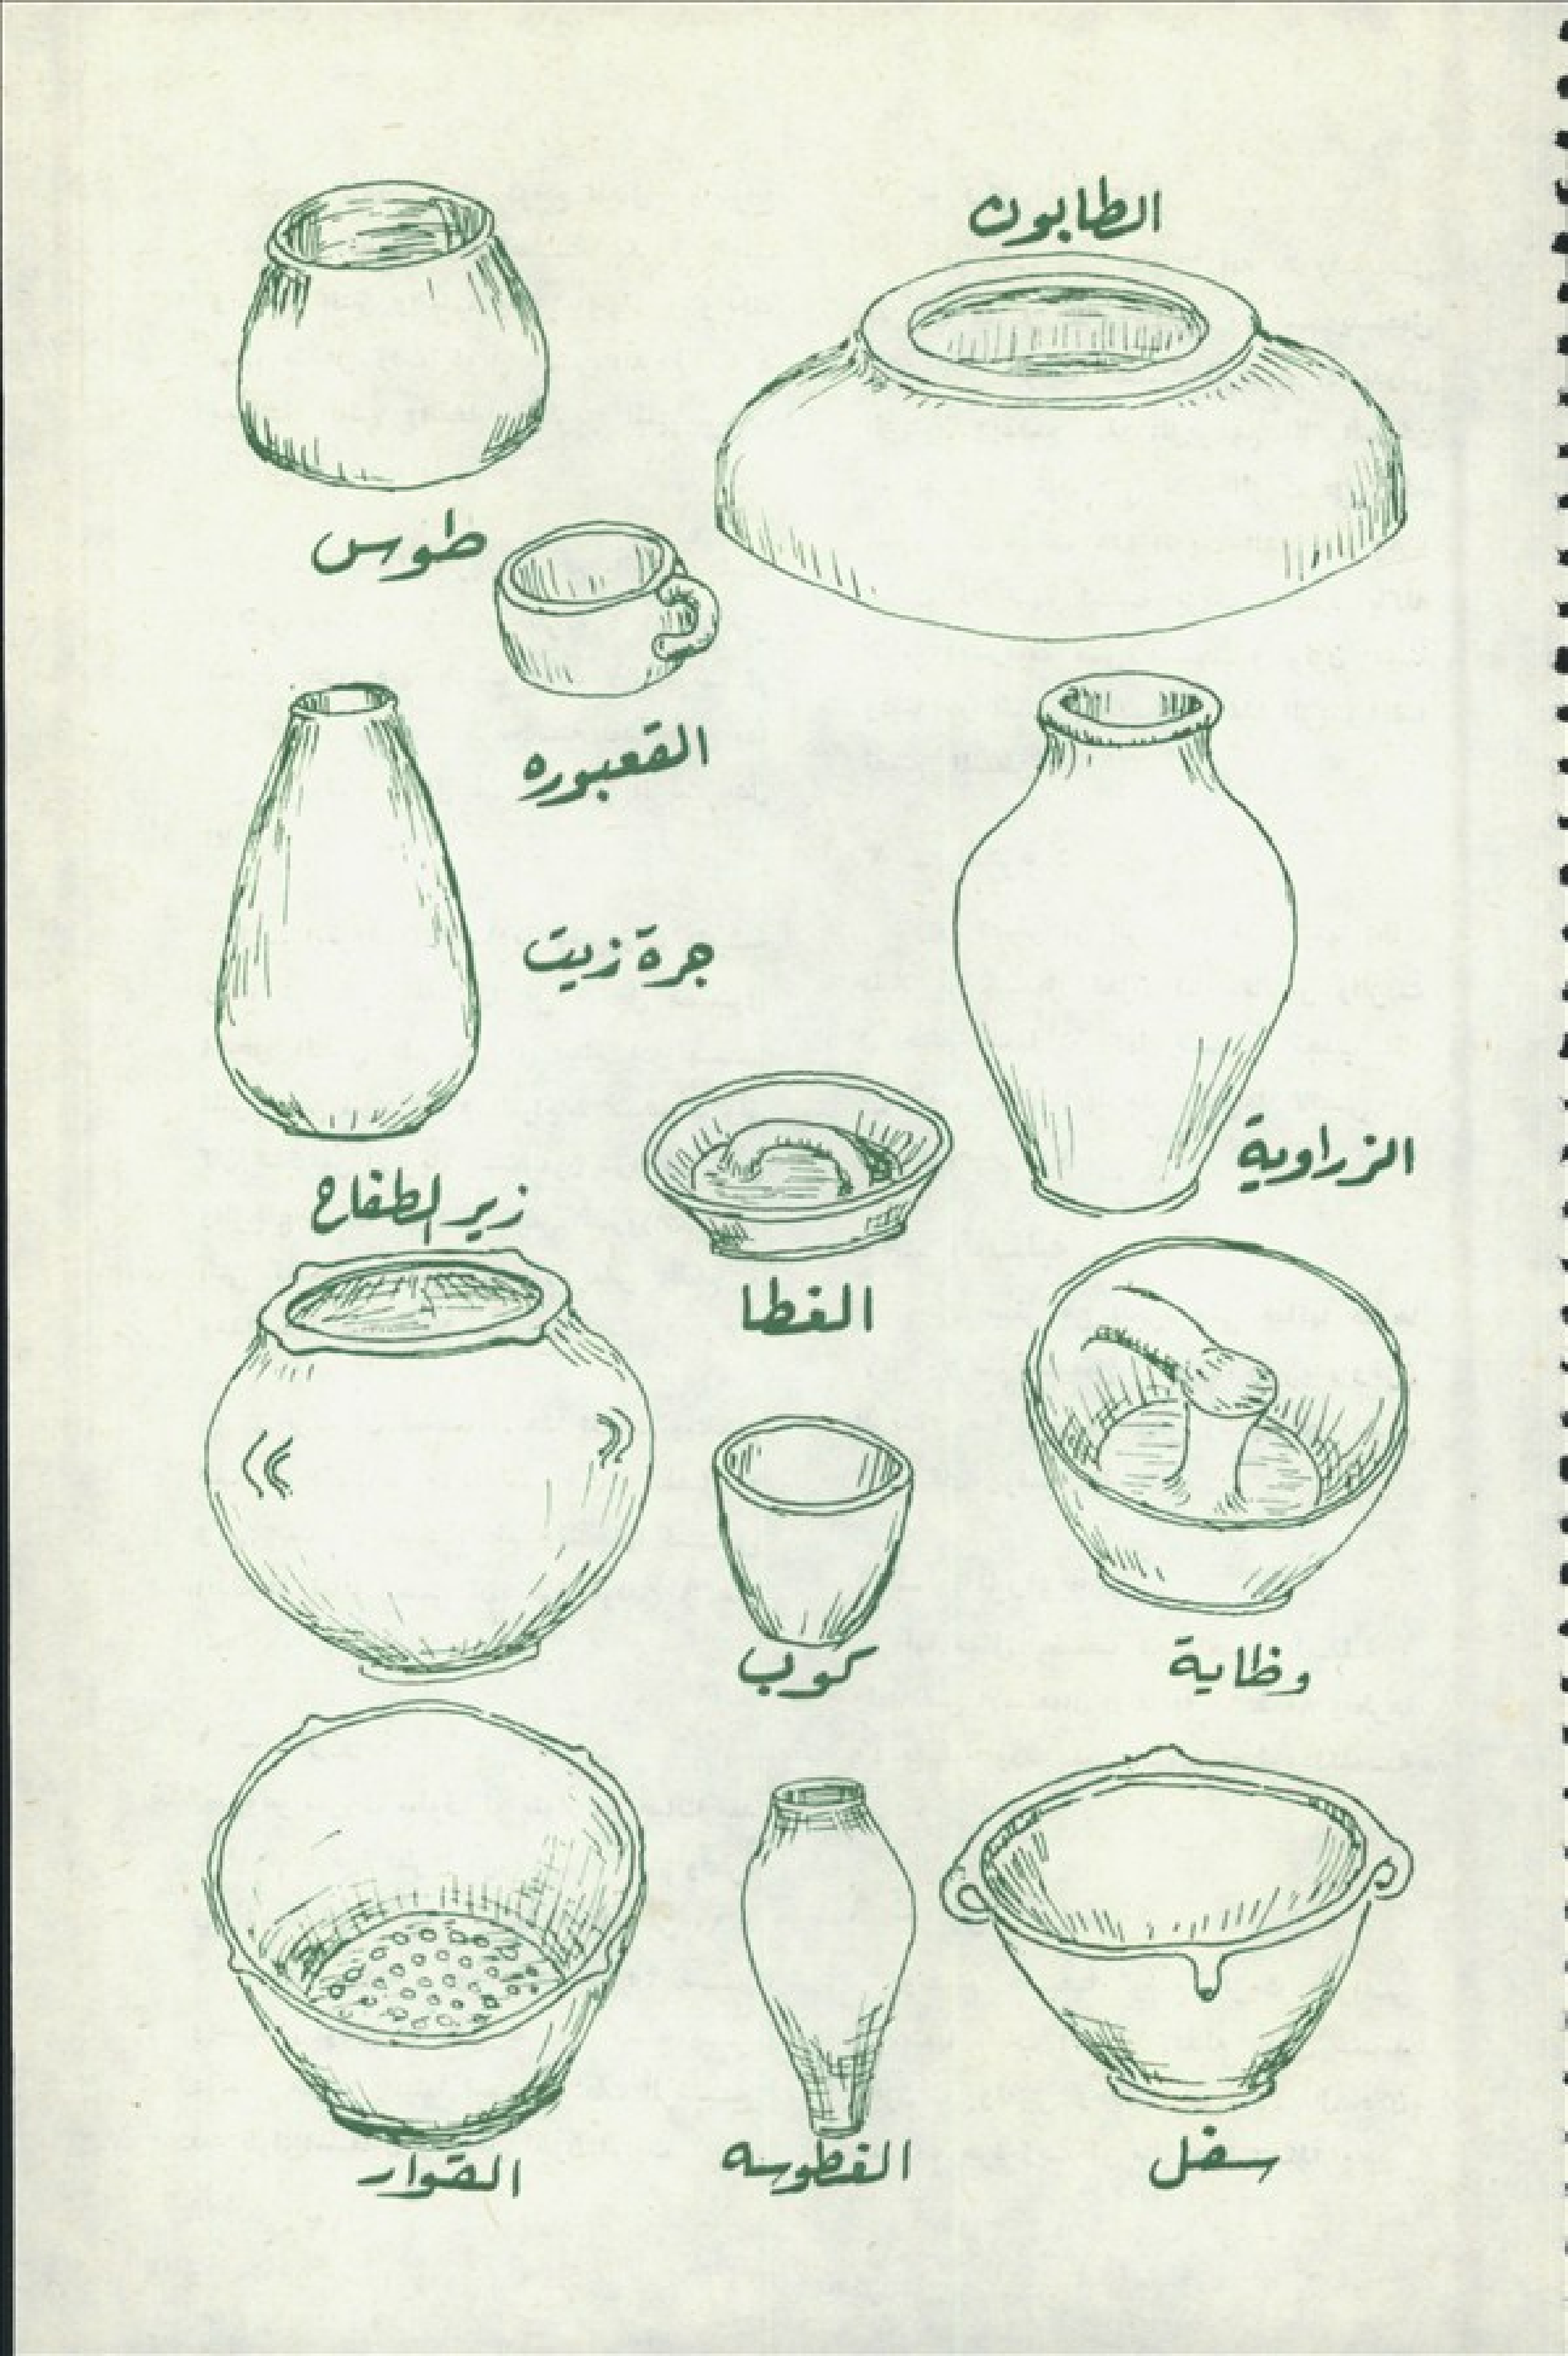 الطابون
طوس
القعبوره
جرة زيت
الزراوية
زير الطفاح
الغطا
كوب
وظاية
القوار
الغطوسه
سفل